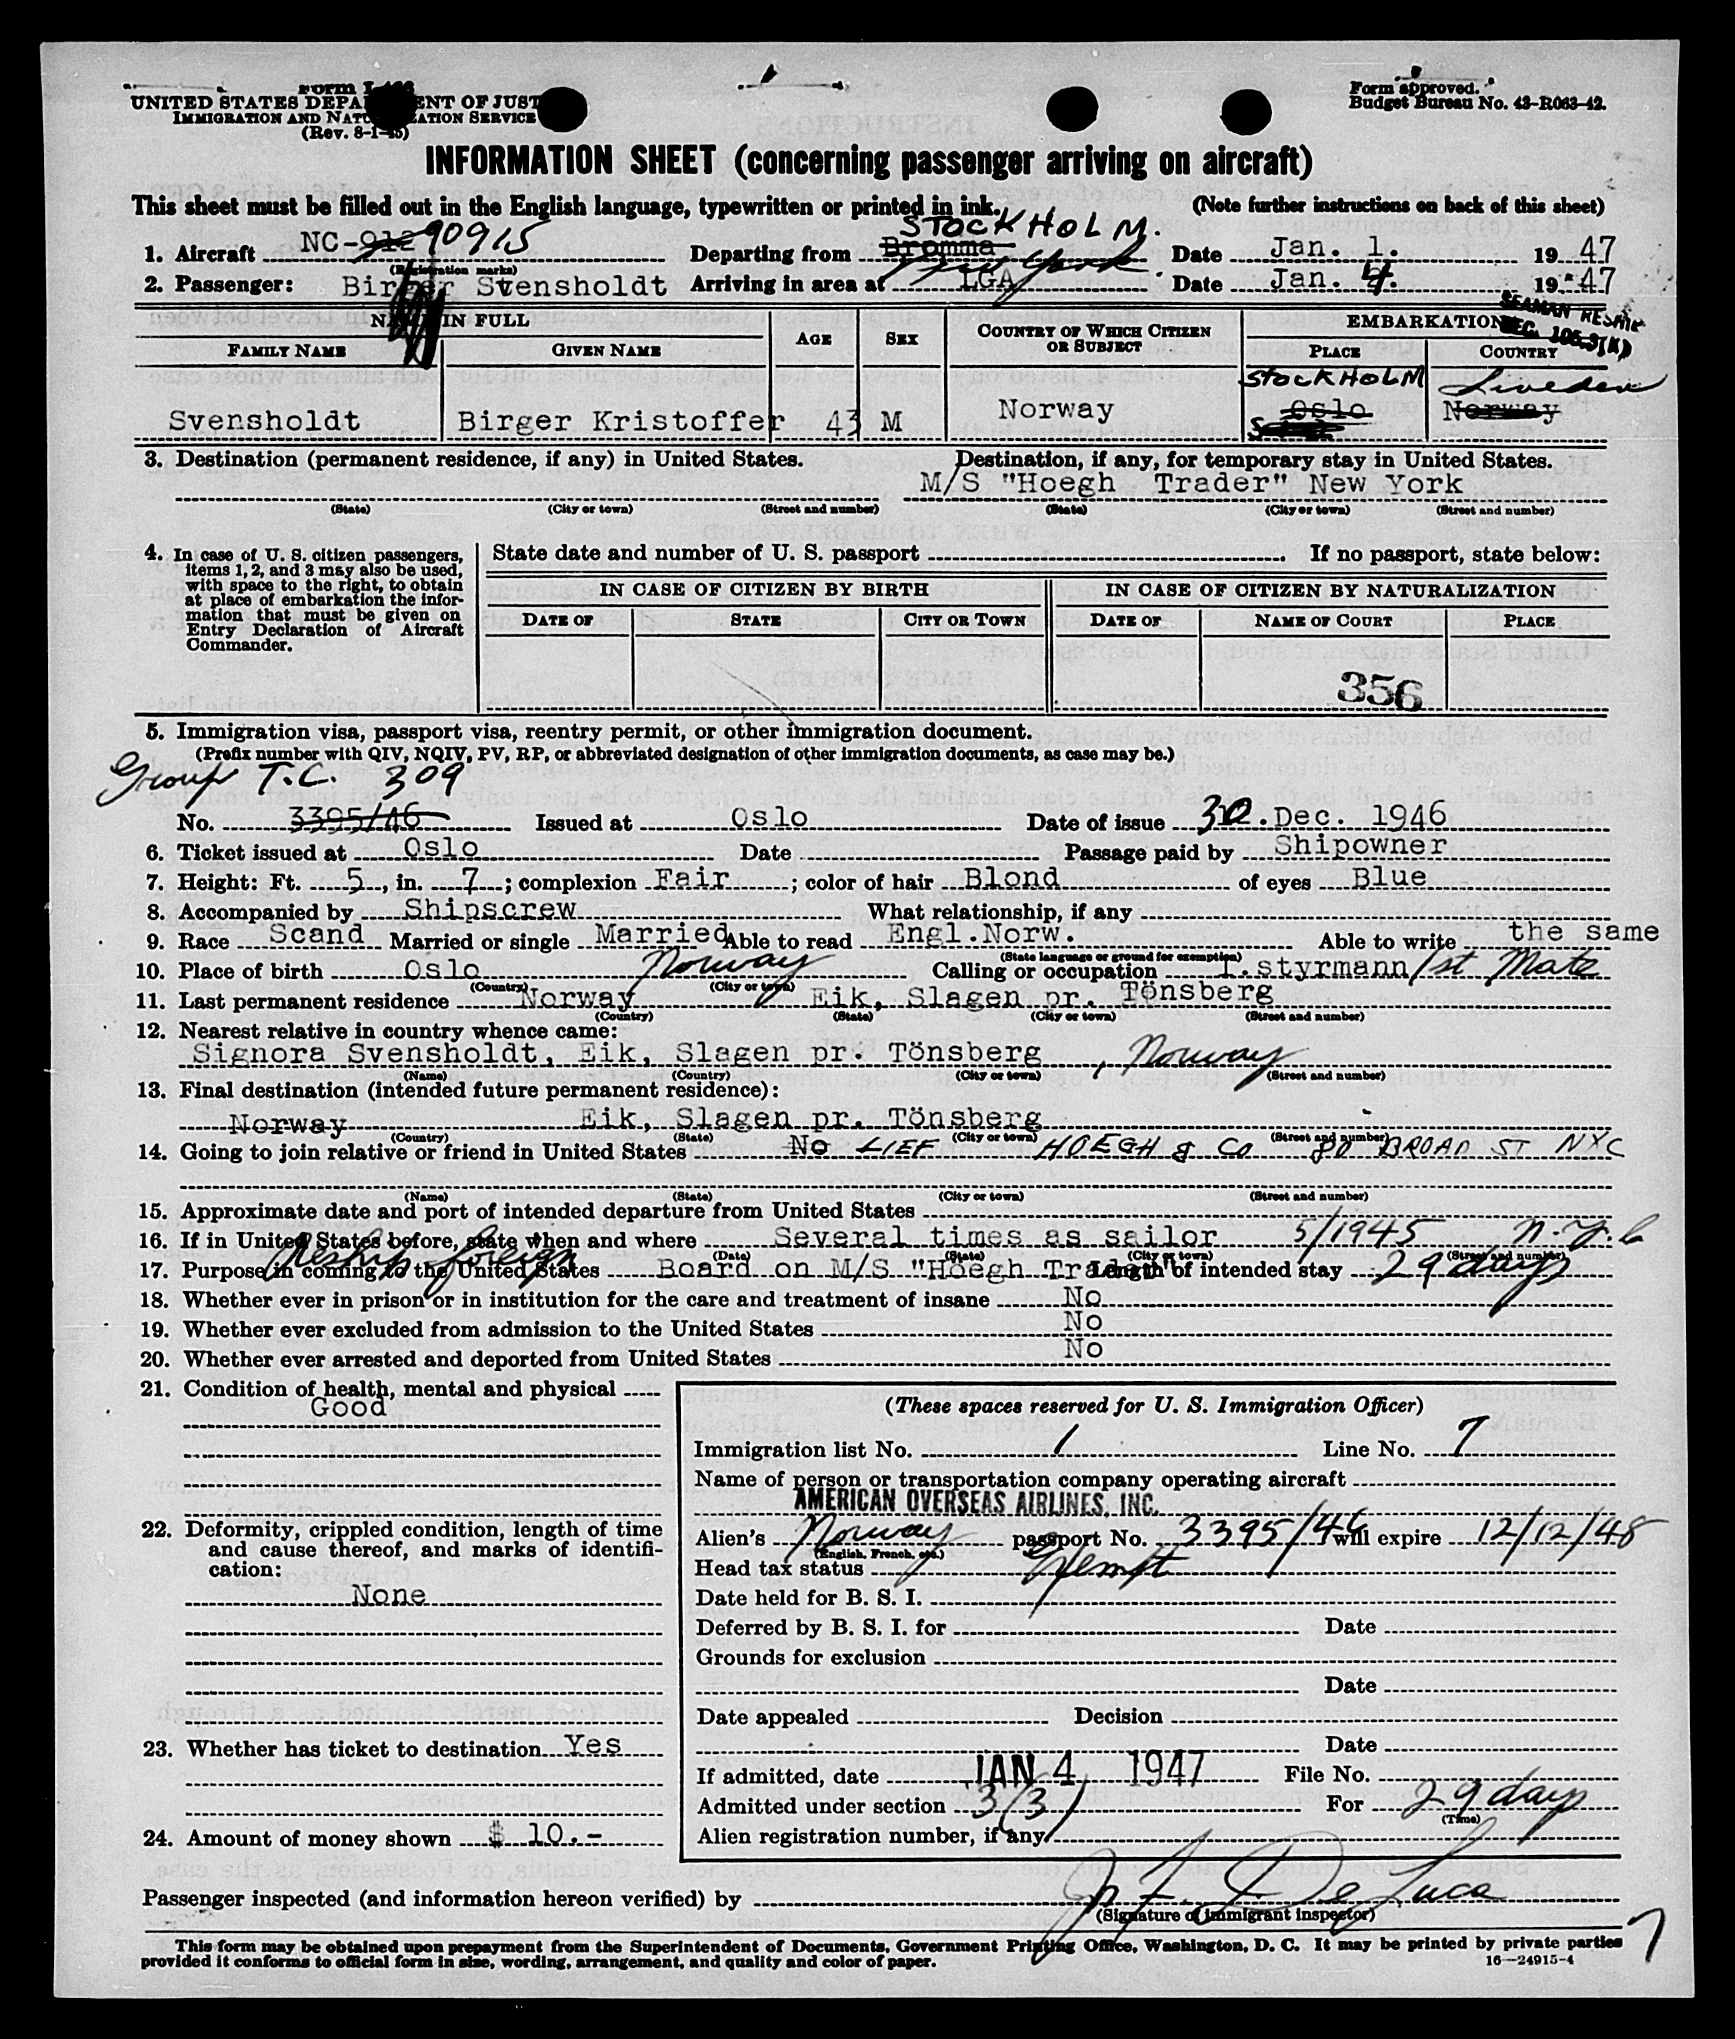 Form I-466
UNITED STATES DEPARTMENT OF JUSTICE
IMMIGRATION AND NATURALIZATION SERVICE
(Rev. 8-1-45)
Form approved.
Budget Bureau No. 43-R063-42.
INFORMATION SHEET (concerning passenger arriving on aircraft)
This sheet must be filled out in the English language, typewritten or printed in ink.
(Note further instructions on back of this sheet)
STOCKHOLM.
1. Aircraft NC-912 90915 Departing from Bromma Date Jan. 1. 1947
(Registration marks) New York
2. Passenger: Birger Svensholdt Arriving in area at LGA Date Jan. 4. 1947
SEAMAN RESHIP
SEC. 105.3(K)
NAME IN FULL AGE SEX COUNTRY OF WHICH CITIZEN OR SUBJECT EMBARKATION
FAMILY NAME GIVEN NAME PLACE COUNTRY
STOCKHOLM Sweden
Svensholdt Birger Kristoffer 43 M Norway Oslo Norway
3. Destination (permanent residence, if any) in United States. Destination, if any, for temporary stay in United States.
M/S "Hoegh Trader" New York
(State) (City or town) (Street and number) (State) (City or town) (Street and number)
4. In case of U. S. citizen passengers, items 1, 2, and 3 may also be used, with space to the right, to obtain at place of embarkation the information that must be given on Entry Declaration of Aircraft Commander.
State date and number of U. S. passport If no passport, state below:
IN CASE OF CITIZEN BY BIRTH IN CASE OF CITIZEN BY NATURALIZATION
DATE OF STATE CITY OR TOWN DATE OF NAME OF COURT PLACE
356
5. Immigration visa, passport visa, reentry permit, or other immigration document.
(Prefix number with QIV, NQIV, PV, RP, or abbreviated designation of other immigration documents, as case may be.)
Group T.C. 309
No. 3395/46 Issued at Oslo Date of issue 30. Dec. 1946
6. Ticket issued at Oslo Date Passage paid by Shipowner
7. Height: Ft. 5, in. 7; complexion Fair; color of hair Blond of eyes Blue
8. Accompanied by Shipscrew What relationship, if any
9. Race Scand Married or single Married Able to read Engl.Norw. Able to write the same
(State language or ground for exemption)
10. Place of birth Oslo Norway Calling or occupation 1.styrmann 1st Mate
(Country) (City or town)
11. Last permanent residence Norway Eik, Slagen pr. Tönsberg
(Country) (State) (City or town) (Street and number)
12. Nearest relative in country whence came:
Signora Svensholdt, Eik, Slagen pr. Tönsberg, Norway
(Name) (Country) (City or town) (Street and number)
13. Final destination (intended future permanent residence):
Norway Eik, Slagen pr. Tönsberg
(Country) (State) (City or town) (Street and number)
14. Going to join relative or friend in United States No LIEF HOEGH & CO 80 BROAD ST NYC
(Name) (State) (City or town) (Street and number)
15. Approximate date and port of intended departure from United States
16. If in United States before, state when and where Several times as sailor 5/1945 N.Y.C
(Date) (State) (City or town) (Street and number)
Reship foreign
17. Purpose in coming to the United States Board on M/S "Hoegh Trader" Length of intended stay 29 days
18. Whether ever in prison or in institution for the care and treatment of insane No
19. Whether ever excluded from admission to the United States No
20. Whether ever arrested and deported from United States No
21. Condition of health, mental and physical
Good
22. Deformity, crippled condition, length of time and cause thereof, and marks of identification:
None
23. Whether has ticket to destination Yes
24. Amount of money shown $ 10.-
(These spaces reserved for U. S. Immigration Officer)
Immigration list No. 1 Line No. 7
Name of person or transportation company operating aircraft
AMERICAN OVERSEAS AIRLINES, INC.
Alien's Norway passport No. 3395/46 will expire 12/12/48
(English, French, etc.)
Head tax status Exempt
Date held for B. S. I.
Deferred by B. S. I. for Date
Grounds for exclusion
Date
Date appealed Decision
Date
If admitted, date JAN 4 1947 File No.
Admitted under section 3(3) For 29 days
(Time)
Alien registration number, if any
Passenger inspected (and information hereon verified) by J. F. De Luca
(Signature of immigrant inspector)
7
This form may be obtained upon prepayment from the Superintendent of Documents, Government Printing Office, Washington, D. C. It may be printed by private parties
provided it conforms to official form in size, wording, arrangement, and quality and color of paper.
16—24915-4